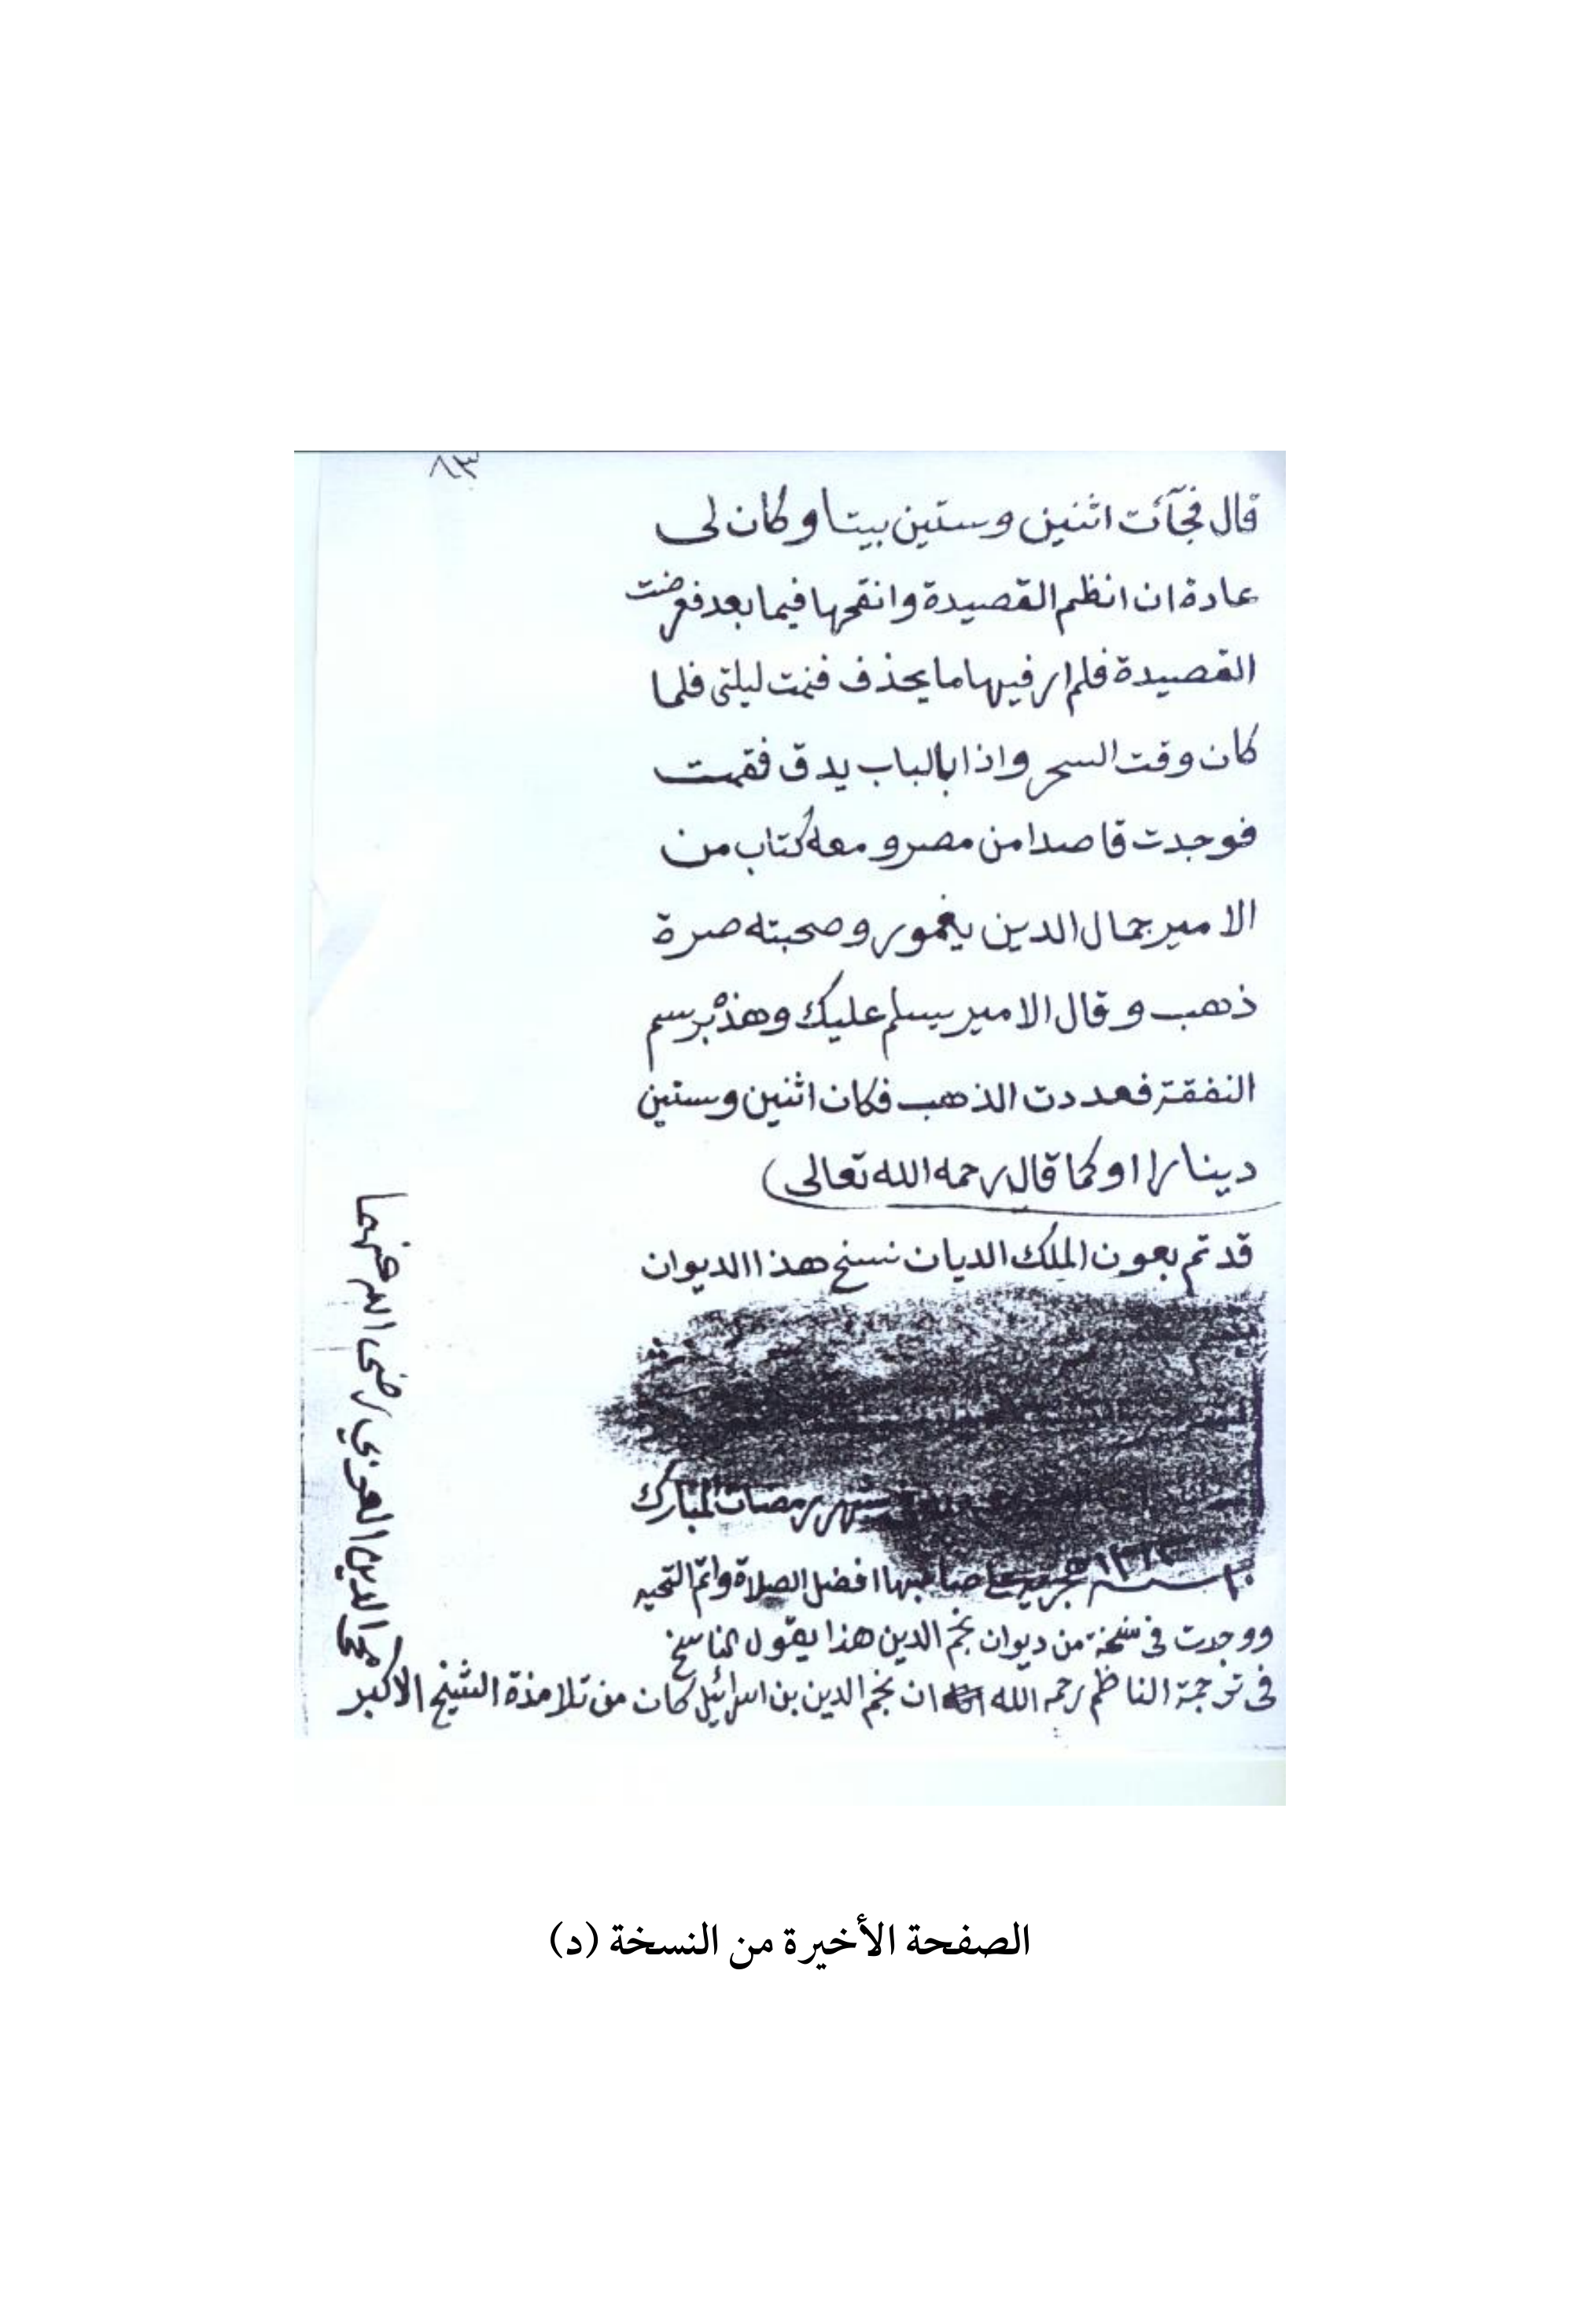 ٨٣
قال فجآئت اثنين وستين بيتا وكان لى
عادة ان انظم القصيدة وانقحها فيما بعد فعرضت
القصيدة فلم ار فيها ما يحذف فنمت ليلتى فلما
كان وقت السحر واذا بالباب يدق فقمت
فوجدت قاصدا من مصر ومعه كتاب من
الامير جمال الدين يغمور وصحبته صرة
ذهب وقال الامير يسلم عليك وهذه برسم
النفقة فعددت الذهب فكان اثنين وستين
دينارا او كما قال رحمه الله تعالى)
قد تم بعون الملك الديان نسخ هذا الديوان
شهر رمضان المبارك
سنة هجرية صاحبها افضل الصلاة واتم التحيه
ووجدت فى نسخة من ديوان نجم الدين هذا يقول الناسخ
فى ترجمة الناظم رحمه الله ان نجم الدين بن اسرائيل كان من تلامذة الشيخ الاكبر
محى الدين العربي رضى الله عنهما
الصفحة الأخيرة من النسخة (د)